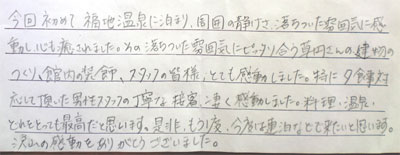 今回初めて福地温泉に泊まり、周囲の静けさ、落ちついた雰囲気に感
動し心も癒されました。その落ちついた雰囲気にピッタリ合う草円さんの建物の
つくり、館内の装飾、スタッフの皆様、とても感動しました。特に夕食時対
応して頂いた男性スタッフの丁寧な接客、凄く感動しました。料理・温泉・
どれをとっても最高だと思います。是非、もう1度、今度は連泊などでも来たいと思います。
沢山の感動をありがとうございました。